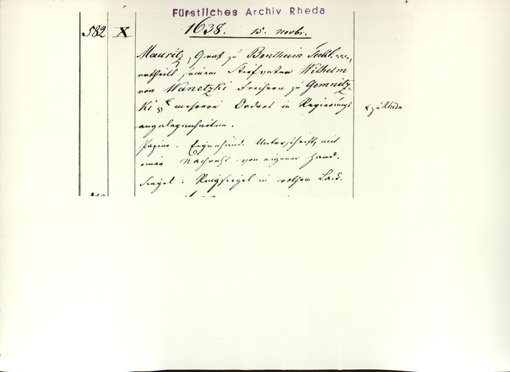 Fürstliches Archiv Rheda
582 X 1638. 15. Novbr.
Mauritz, Graf zu Bentheim Teckl.
ertheilt seinem Stiefvater Wilhelm
von Wanetzki Freiherrn zu Gemnitz-
ki mehrere Orders in Regierungs
& zu Rheda
angelegenheiten.
Papier. Eigenhänd. Unterschrift, mit
einer Nachschr. von eigener Hand.
Siegel: Ringsiegel in rothem Lack.